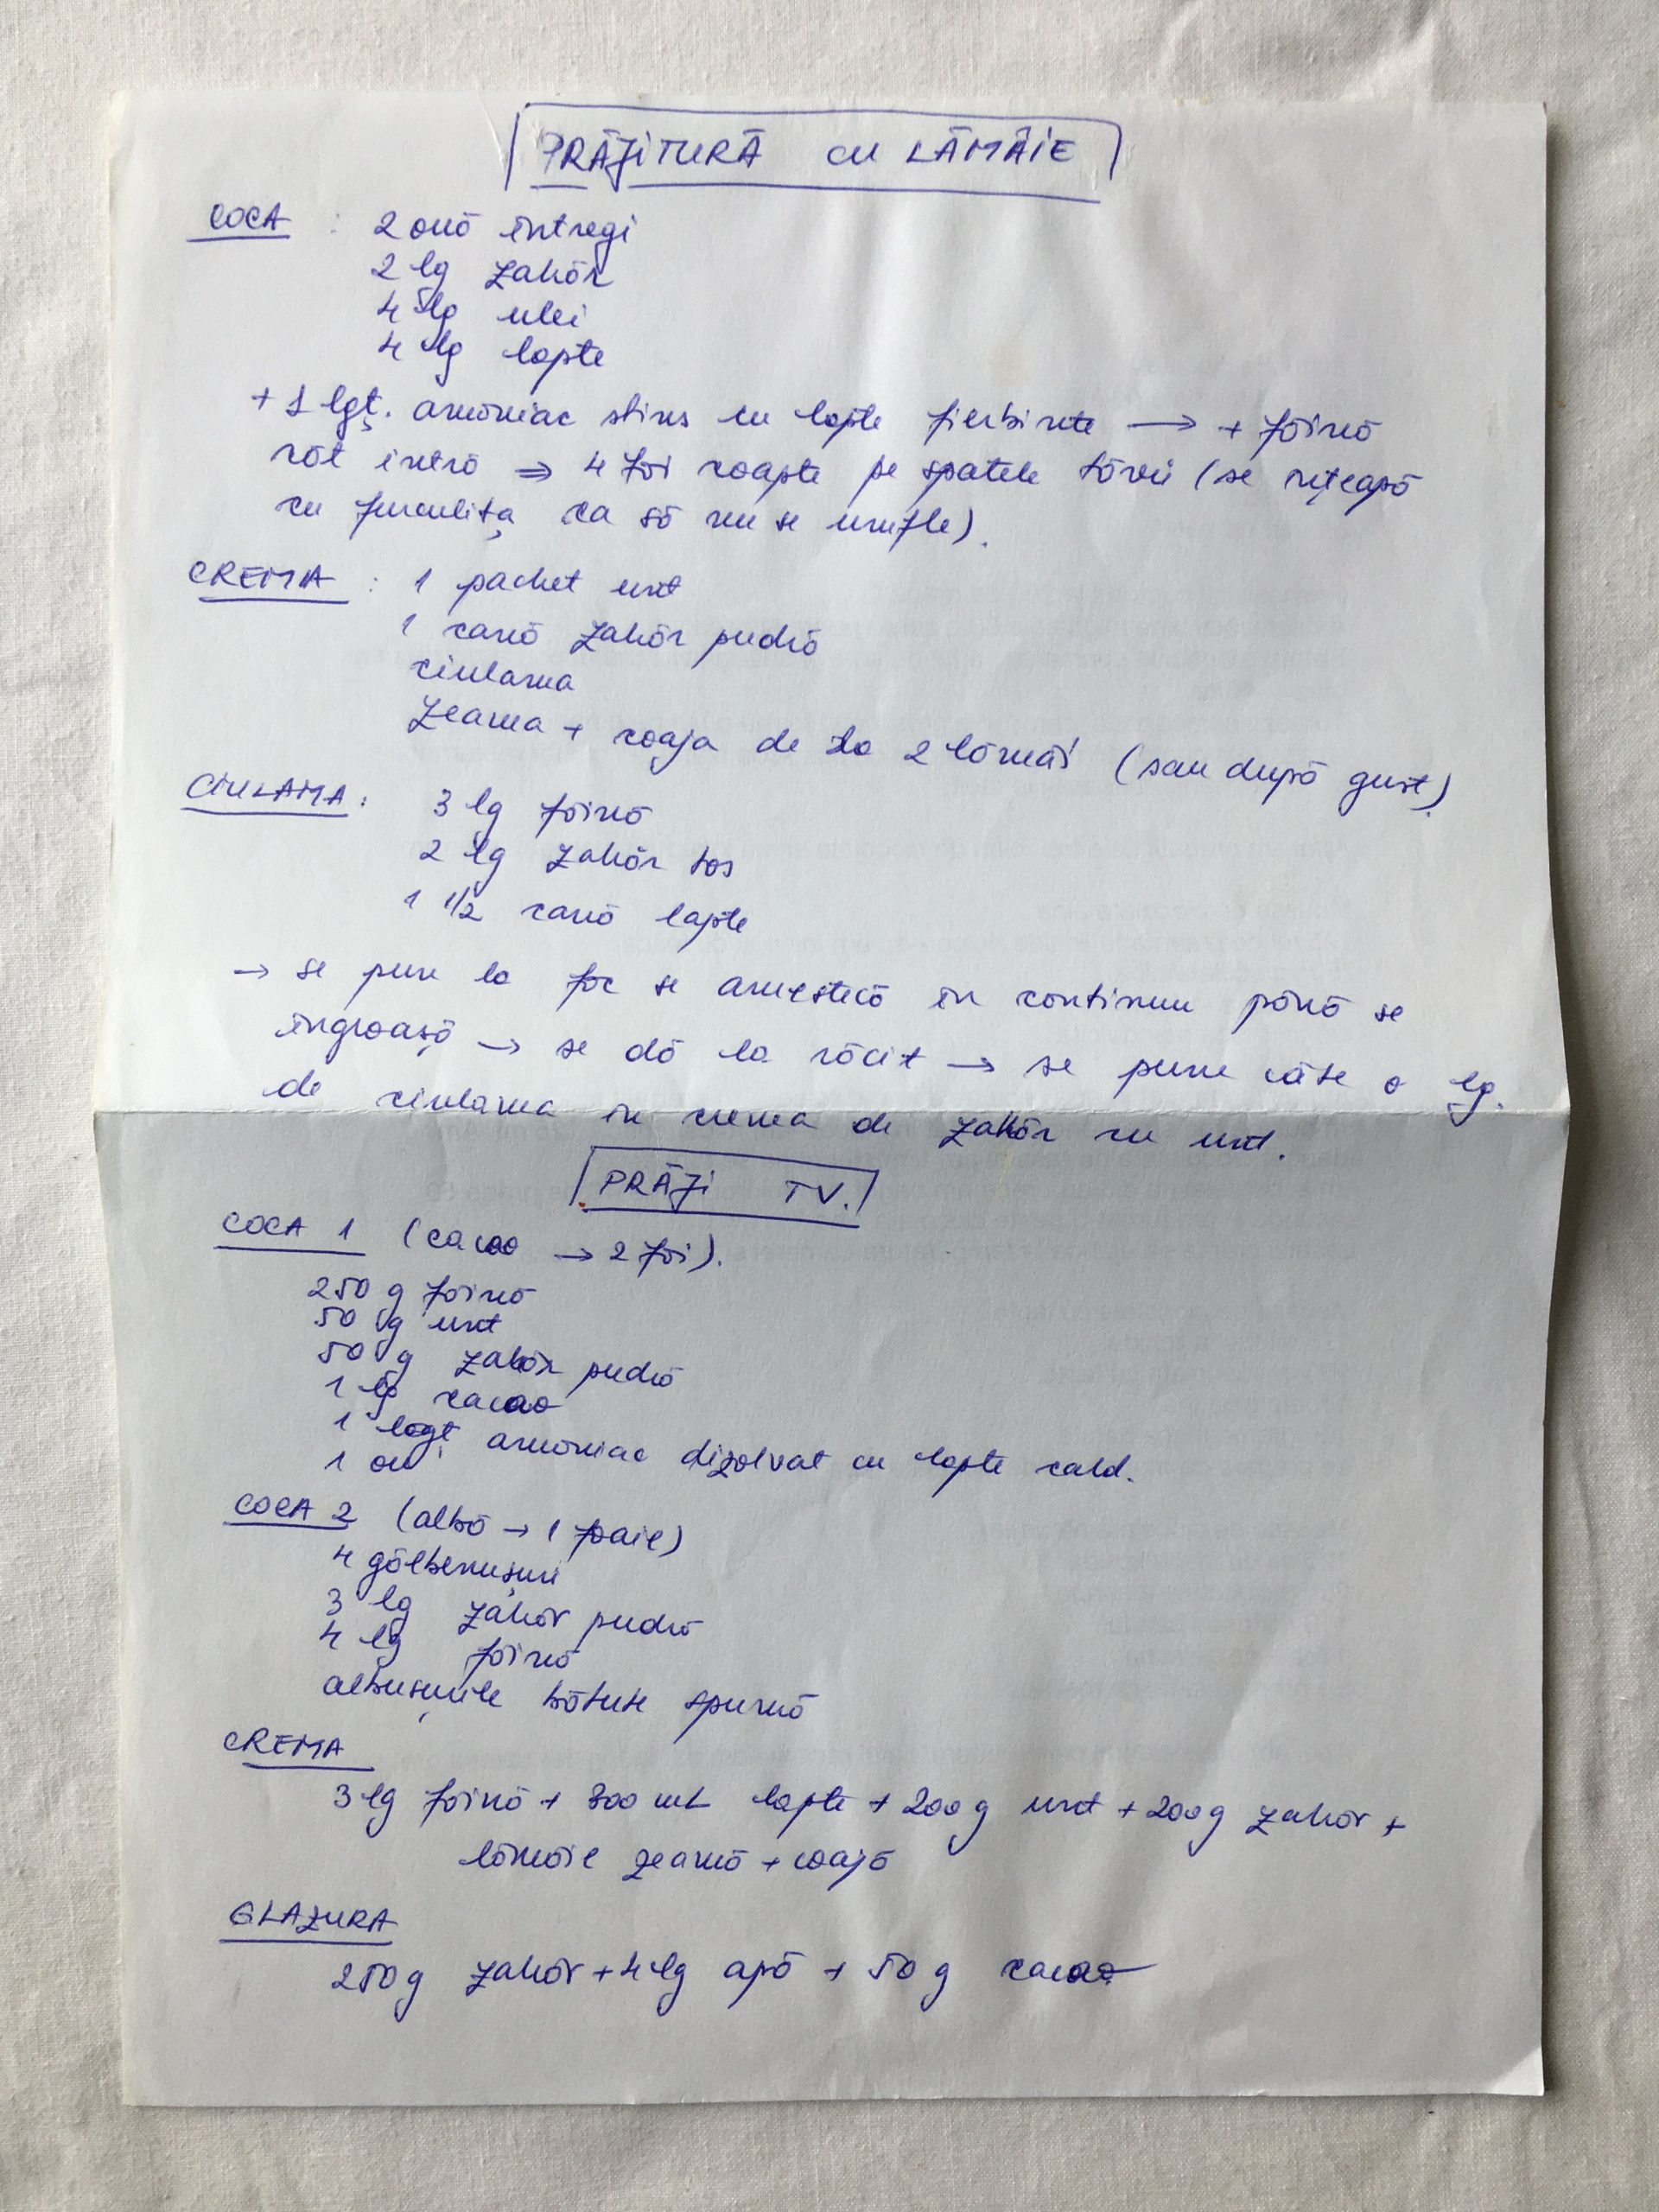 PRĂJITURĂ CU LĂMÂIE
COCA : 2 ouă întregi
2 lg zahăr
4 lg ulei
4 lg lapte
+ 1 lgț. amoniac stins cu lapte fierbinte → + făină
cât intră ⇒ 4 foi coapte pe spatele tăvii (se înțeapă
cu furculița ca să nu se umfle).
CREMA : 1 pachet unt
1 cană zahăr pudră
ciulama
zeama + coaja de la 2 lămâi (sau după gust).
CIULAMA : 3 lg făină
2 lg zahăr tos
1 1/2 cană lapte
→ se pune la foc se amestecă în continuu până se
îngroașă → se dă la răcit → se pune câte o lg.
de ciulama în crema de zahăr cu unt.
PRĂJI TV.
COCA 1 (cacao → 2 foi).
250 g făină
50 g unt
50 g zahăr pudră
1 lg cacao
1 lgț amoniac dizolvat cu lapte cald.
1 ou
COCA 2 (albă → 1 foaie)
4 gălbenușuri
3 lg zahăr pudră
4 lg făină
albușurile bătute spumă
CREMA
3 lg făină + 300 mL lapte + 200 g unt + 200 g zahăr +
lămâie zeamă + coajă
GLAZURA
250 g zahăr + 4 lg apă + 50 g cacao